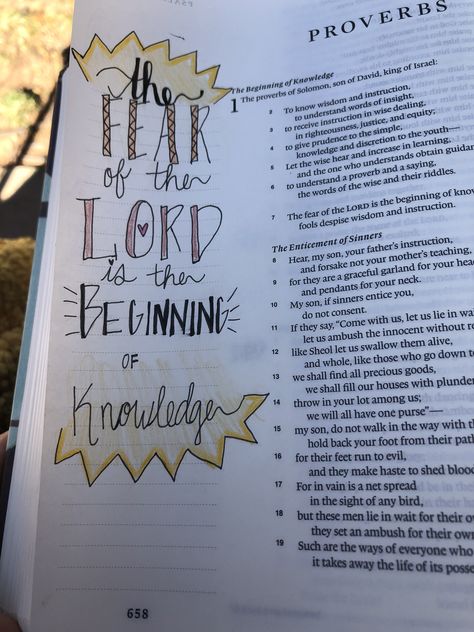 PROVERBS
the
FEAR
of the
LORD
is the
BEGINNING
OF
Knowledge
The Beginning of Knowledge
1 The proverbs of Solomon, son of David, king of Israel:
2 To know wisdom and instruction,
to understand words of insight,
3 to receive instruction in wise dealing,
in righteousness, justice, and equity;
4 to give prudence to the simple,
knowledge and discretion to the youth—
5 Let the wise hear and increase in learning,
and the one who understands obtain guidan
6 to understand a proverb and a saying,
the words of the wise and their riddles.
7 The fear of the LORD is the beginning of know
fools despise wisdom and instruction.
The Enticement of Sinners
8 Hear, my son, your father's instruction,
and forsake not your mother's teaching,
9 for they are a graceful garland for your head
and pendants for your neck.
10 My son, if sinners entice you,
do not consent.
11 If they say, "Come with us, let us lie in wait
let us ambush the innocent without re
12 like Sheol let us swallow them alive,
and whole, like those who go down to
13 we shall find all precious goods,
we shall fill our houses with plunder
14 throw in your lot among us;
we will all have one purse"—
15 my son, do not walk in the way with th
hold back your foot from their path
16 for their feet run to evil,
and they make haste to shed blood
17 For in vain is a net spread
in the sight of any bird,
18 but these men lie in wait for their ow
they set an ambush for their own
19 Such are the ways of everyone who
it takes away the life of its posse
658